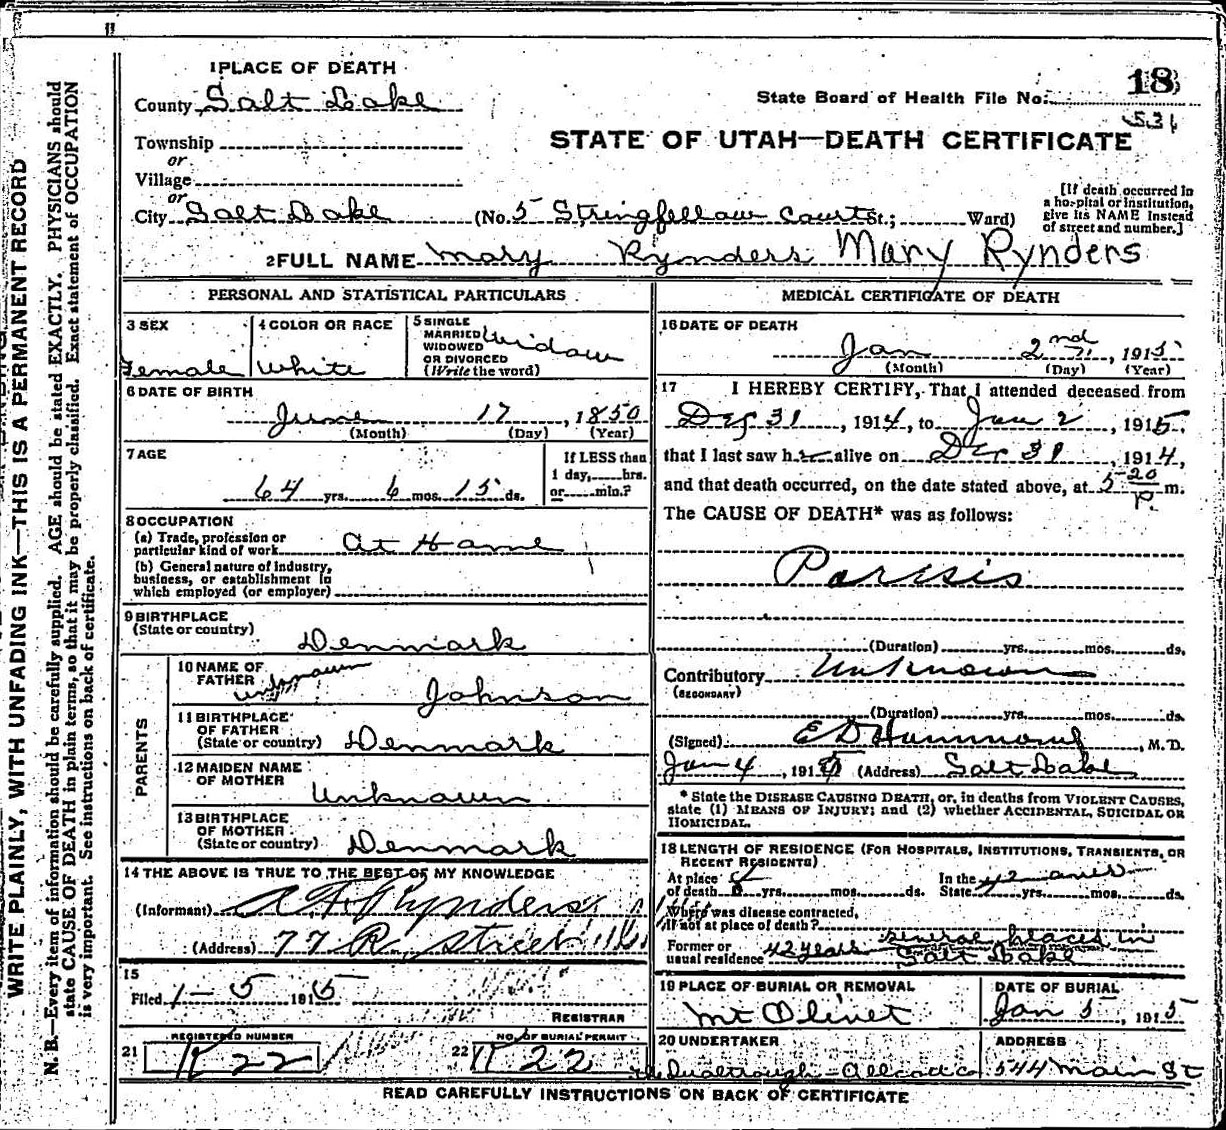 1 PLACE OF DEATH
County Salt Lake
Township
or
Village
or
City Salt Lake (No. 5 Stringfellow Court St.; Ward)
18
State Board of Health File No.
531
STATE OF UTAH—DEATH CERTIFICATE
[If death occurred in
a hospital or institution,
give its NAME instead
of street and number.]
2 FULL NAME Mary Rynders Mary Rynders
PERSONAL AND STATISTICAL PARTICULARS
3 SEX
Female
4 COLOR OR RACE
White
5 SINGLE
MARRIED
WIDOWED
OR DIVORCED
(Write the word)
Widow
6 DATE OF BIRTH
June 17, 1850
(Month) (Day) (Year)
7 AGE
64 yrs. 6 mos. 15 ds.
If LESS than
1 day,......hrs.
or......min.?
8 OCCUPATION
(a) Trade, profession or
particular kind of work At Home
(b) General nature of industry,
business, or establishment in
which employed (or employer)
9 BIRTHPLACE
(State or country) Denmark
PARENTS
10 NAME OF
FATHER unknown Johnson
11 BIRTHPLACE
OF FATHER
(State or country) Denmark
12 MAIDEN NAME
OF MOTHER
Unknown
13 BIRTHPLACE
OF MOTHER
(State or country) Denmark
14 THE ABOVE IS TRUE TO THE BEST OF MY KNOWLEDGE
(Informant) A. F. Rynders
(Address) 77 R. Street
15
Filed 1-5 1915
REGISTRAR
21 REGISTERED NUMBER
22
22 NO. OF BURIAL PERMIT
22
MEDICAL CERTIFICATE OF DEATH
16 DATE OF DEATH
Jan 2nd, 1915
(Month) (Day) (Year)
17 I HEREBY CERTIFY, That I attended deceased from
Dec 31, 1914, to Jan 2, 1915,
that I last saw her alive on Dec 31, 1914,
and that death occurred, on the date stated above, at 5 20 P. m.
The CAUSE OF DEATH* was as follows:
Paresis
(Duration) yrs. mos. ds.
Contributory Unknown
(SECONDARY)
(Duration) yrs. mos. ds.
(Signed) E D Hammond, M. D.
Jan 4, 1915 (Address) Salt Lake
* State the DISEASE CAUSING DEATH, or, in deaths from VIOLENT CAUSES,
state (1) MEANS OF INJURY; and (2) whether ACCIDENTAL, SUICIDAL OR
HOMICIDAL.
18 LENGTH OF RESIDENCE (FOR HOSPITALS, INSTITUTIONS, TRANSIENTS, OR
RECENT RESIDENTS)
At place
of death yrs. mos. ds.
In the
State 42 yrs. mos. ds.
Where was disease contracted,
if not at place of death?
Former or
usual residence 42 years several places in
Salt Lake
19 PLACE OF BURIAL OR REMOVAL
Mt Olivet
DATE OF BURIAL
Jan 5, 1915
20 UNDERTAKER
ADDRESS
544 Main St
READ CAREFULLY INSTRUCTIONS ON BACK OF CERTIFICATE
WRITE PLAINLY, WITH UNFADING INK—THIS IS A PERMANENT RECORD
N. B.—Every item of information should be carefully supplied. AGE should be stated EXACTLY. PHYSICIANS should
state CAUSE OF DEATH in plain terms, so that it may be properly classified. Exact statement of OCCUPATION
is very important. See instructions on back of certificate.